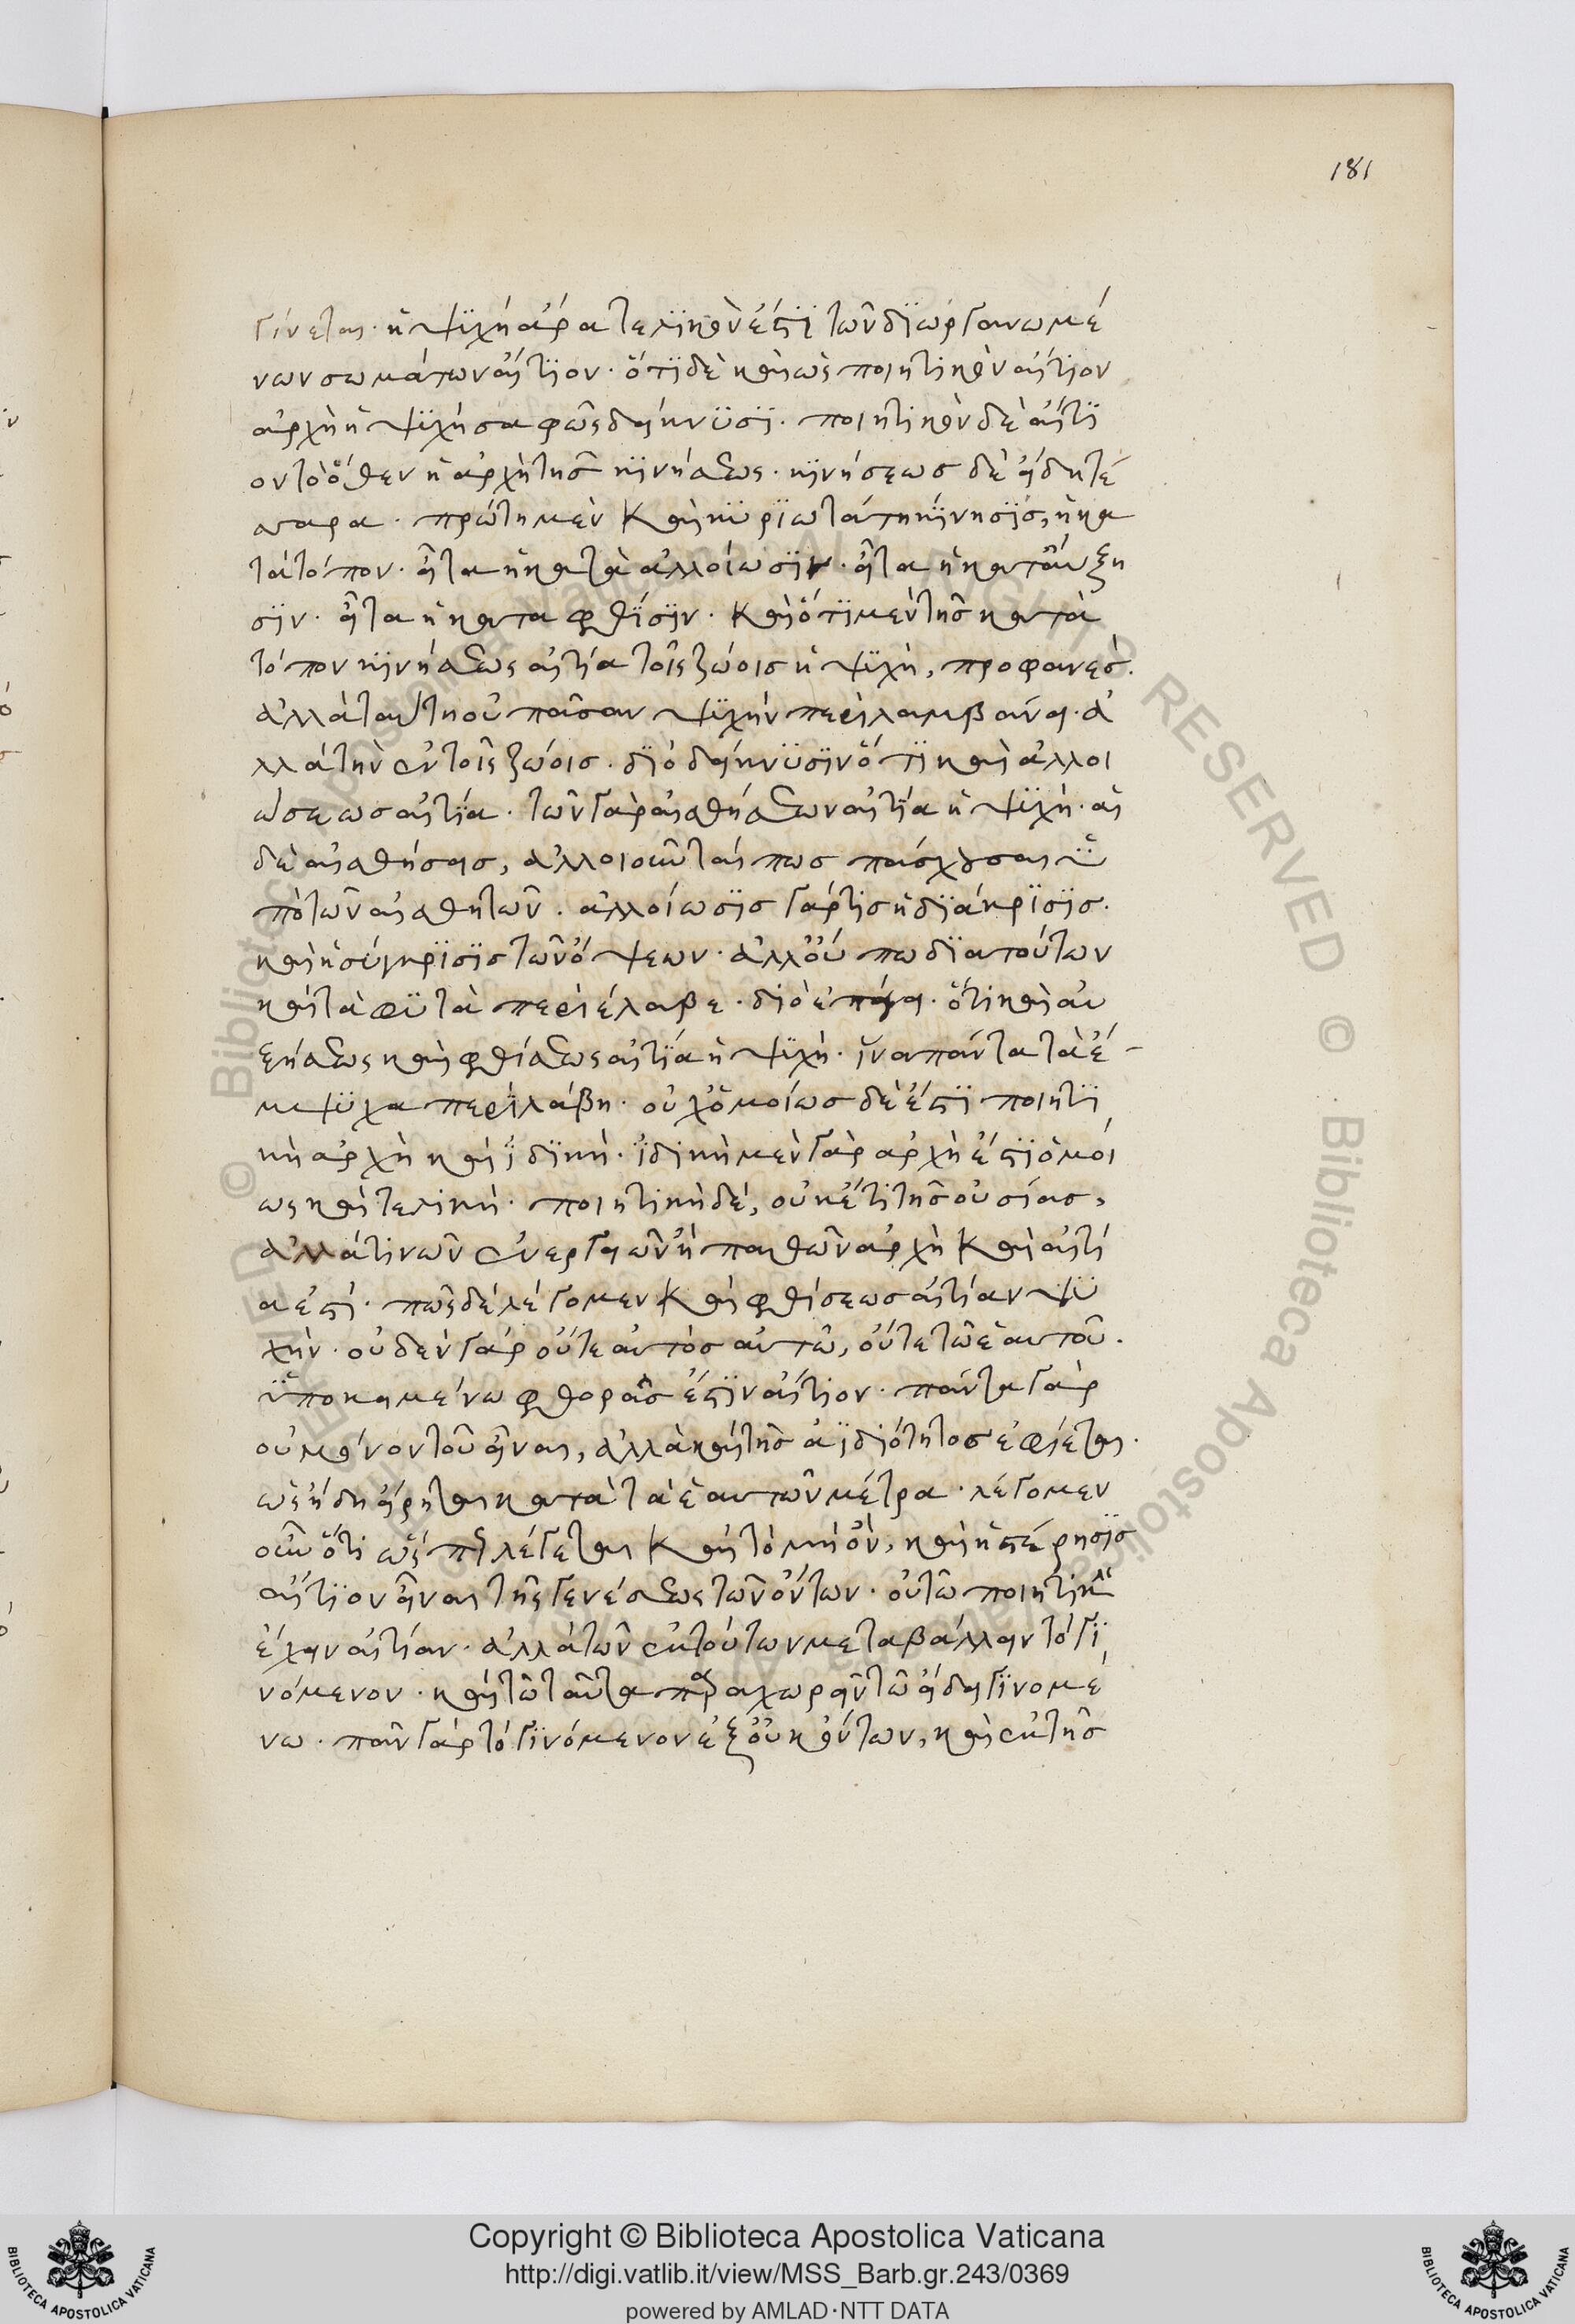 181
γίνεται· ἡ ψϋχὴ ἄρα τελϊκόν ἐστϊ τῶν δϊωργανωμέ
νων σωμάτων αἴτϊον· ὅτϊ δὲ καὶ ὡς ποιητικὸν αἴτϊον
ἀρχὴ ἡ ψϋχὴ σαφῶς δείκνϋσϊ· ποιητικὸν δὲ αἴτϊ
ον τὸ ὅθεν ἡ ἀρχὴ τῆς κϊνήσεως· κϊνήσεως δὲ εἴδη τέ
σσαρα· πρώτη μὲν καὶ κϋρϊωτάτη κίνησϊς, ἡ κα
τὰ τόπον· εἶτα ἡ κατὰ ἀλλοίωσϊν· εἶτα ἡ κατ' αὔξη
σϊν· εἶτα ἡ κατα φθίσϊν· καὶ ὅτϊ μὲν τῆς κατὰ
τόπον κϊνήσεως αἰτία τοῖς ζώοις ἡ ψϋχὴ, προφανὲς.
ἀλλὰ ταύτη οὐ πᾶσαν ψϋχὴν περϊλαμβάνει· ἀ
λλὰ τὴν ἐν τοῖς ζώοις· δϊὸ δείκνϋσϊν ὅτϊ καὶ ἀλλοι
ώσεως αἰτϊα· τῶν γὰρ αἰσθήσεων αἰτϊα ἡ ψϋχὴ· αἱ
δὲ αἰσθήσεις, ἀλλοιοῦνταί πως πάσχουσαι ϋ
πὸ τῶν αἰσθητῶν· ἀλλοίωσϊς γάρ τις ἡ δϊάκρϊσϊς·
καὶ ἡ σύγκρϊσϊς τῶν ὄψεων· ἀλλ' οὔπω δϊα τούτων
καὶ τὰ φϋτὰ περιέλαβε· διὸ ἐπάγει· ὅτι καὶ αὐ
ξήσεως καὶ φθίσεως αἰτϊα ἡ ψϋχὴ· ἵνα πάντα τὰ ἔ-
μψϋχα περϊλάβη· οὐχ ὁμοίως δὲ ἐστϊ ποιητϊ
κὴ ἀρχὴ καὶ ϊδϊκὴ· ϊδικὴ μὲν γὰρ ἀρχὴ ἐστϊ ὁμοί
ως καὶ τελικὴ· ποιητικὴ δέ, οὐκέτι τῆς οὐσίας,
ἀλλά τινων ἐνεργειῶν ἢ παθῶν ἀρχὴ καὶ αἰτί
α ἐστί· πῶς δὲ λέγομεν καὶ φθίσεως αἰτίαν ψϋ
χὴν· οὐδὲν γὰρ οὔτε αὐτὸς αὐτῶ, οὔτε τῶ ἑαυτοῦ.
ϋποκειμένω φθορᾶς ἐστϊν αἴτιον· πάντα γὰρ
οὐ μόνον τοῦ εἶναι, ἀλλὰ καὶ τῆς ἀϊδιότητος ἐφίεται·
ὡς ἤδη εἴρηται κατὰ τὰ ἑαυτῶν μέτρα· λέγομεν
οὖν ὅτι ὥσπερ λέγεται καὶ τὸ μὴ ὄν, καὶ ἡ στέρησϊς
αἴτϊον εἶναι τῆς γενέσεως τῶν ὄντων· οὐ τῶ ποιητικὴν
ἔχειν αἰτίαν· ἀλλὰ τῶ ἐκ τούτων μεταβάλλειν τὸ γϊ
νόμενον· καὶ τῶ ταῦτα παραχωρεῖν τῶ εἴδει γϊνομέ
νω· πᾶν γὰρ τὸ γϊνόμενον ἐξ οὐκ ὄντων, καὶ ἐκ τῆς
Copyright © Biblioteca Apostolica Vaticana
http://digi.vatlib.it/view/MSS_Barb.gr.243/0369
powered by AMLAD·NTT DATA